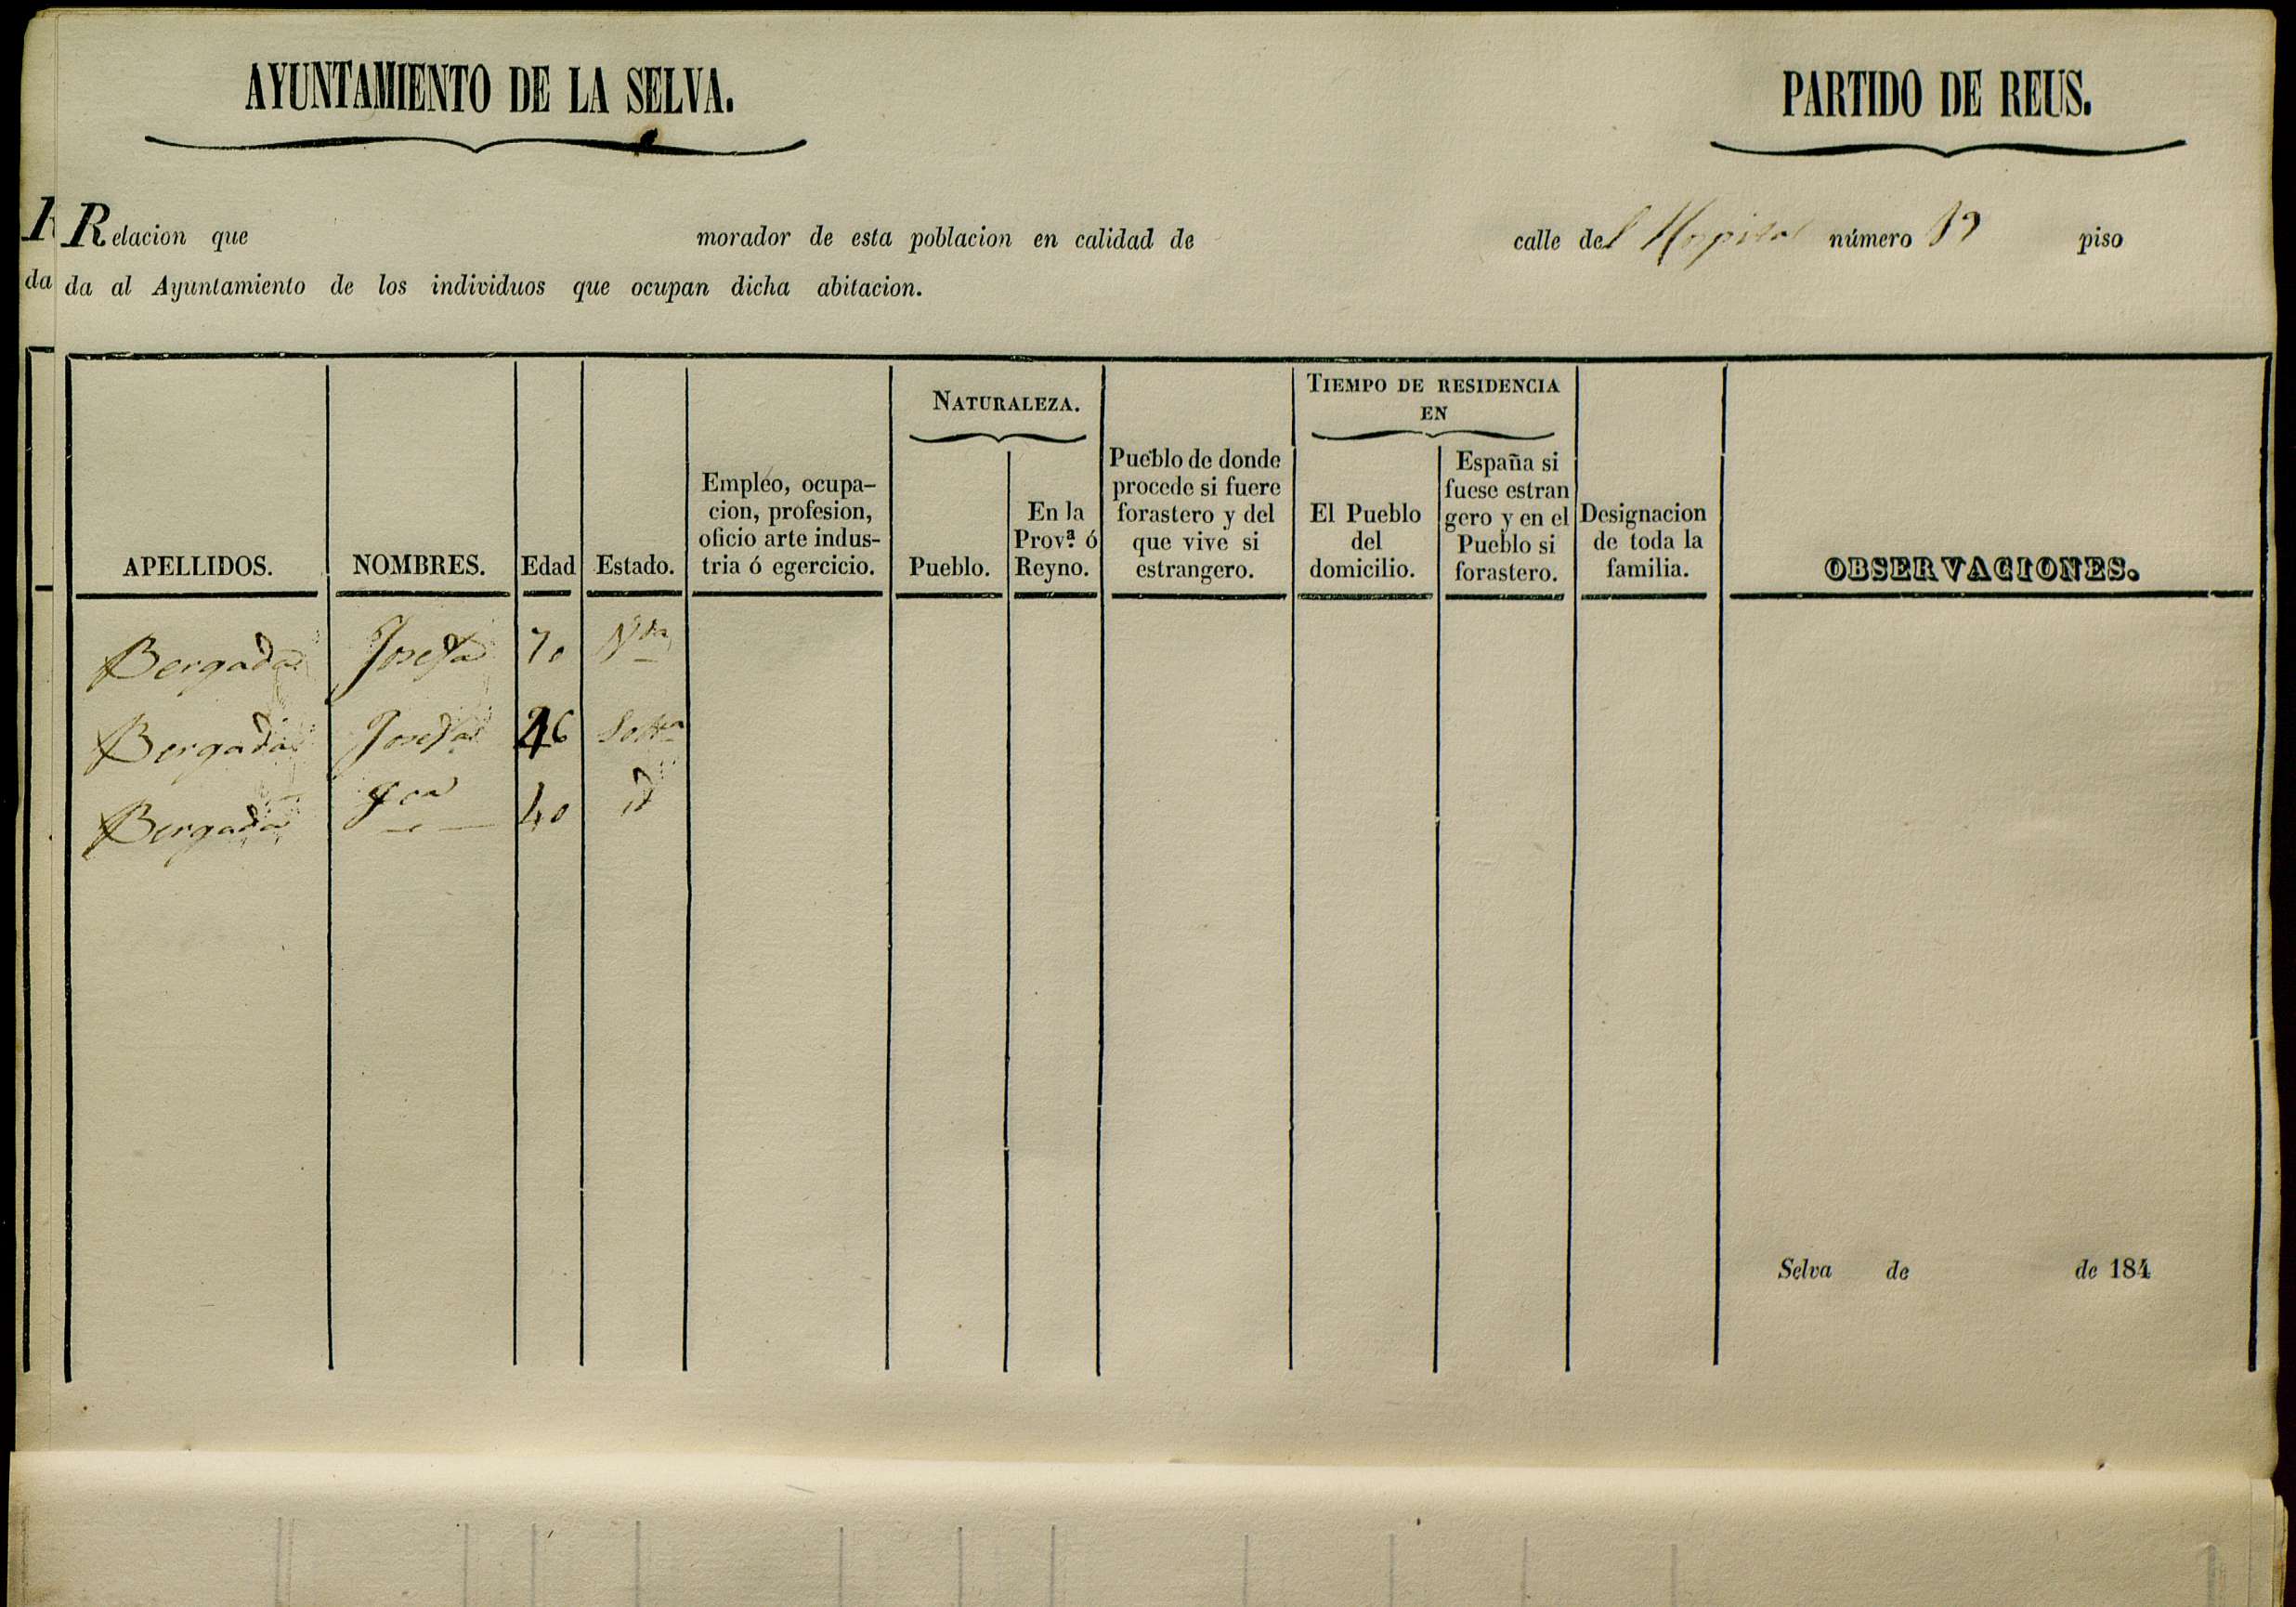 AYUNTAMIENTO DE LA SELVA.
PARTIDO DE REUS.
Relacion que morador de esta poblacion en calidad de calle del Hospital número piso
da al Ayuntamiento de los individuos que ocupan dicha abitacion.
APELLIDOS.
NOMBRES.
Edad
Estado.
Empleo, ocupa-
cion, profesion,
oficio arte indus-
tria ó egercicio.
NATURALEZA.
Pueblo.
En la
Prov.ª ó
Reyno.
Pueblo de donde
procede si fuere
forastero y del
que vive si
estrangero.
TIEMPO DE RESIDENCIA
EN
El Pueblo
del
domicilio.
España si
fuese estran
gero y en el
Pueblo si
forastero.
Designacion
de toda la
familia.
OBSERVACIONES.
Bergada Josefa 70
Bergada Josefa 46 Solt.ª
Bergada 40 id
Selva de de 184